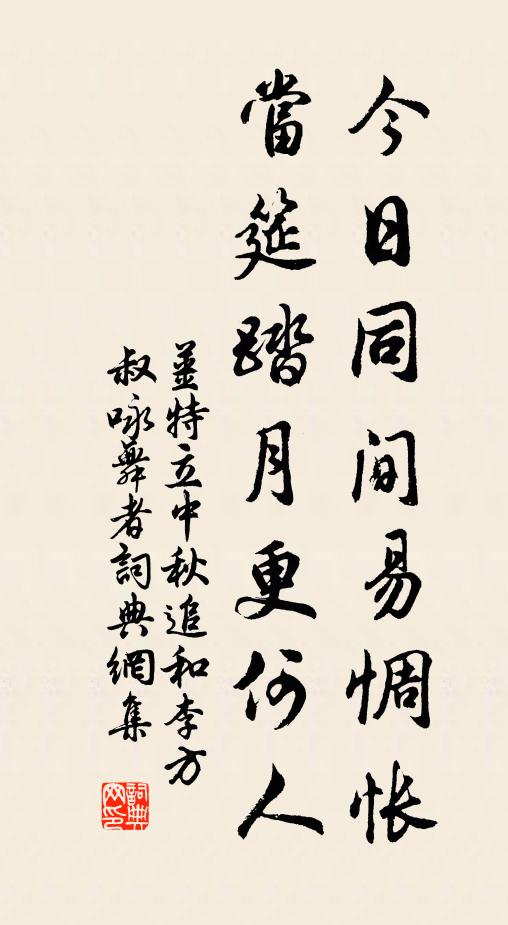 今日同間易惆怅
當筵踏月更何人
姜特立中秋追和李方
叔咏舞者詞典網集
詞典网印